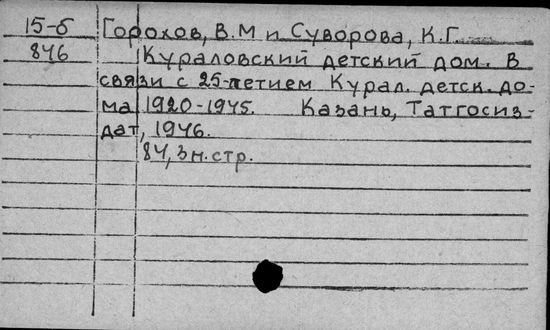 15-б Горохов, В.М и Суворова, К.Г.
846 Кураловский детский дом. В
связи с 25-летием Курал. детск. до-
ма 1920-1945. Казань, Татгосиз-
дат, 1946.
84, 3 н. стр.